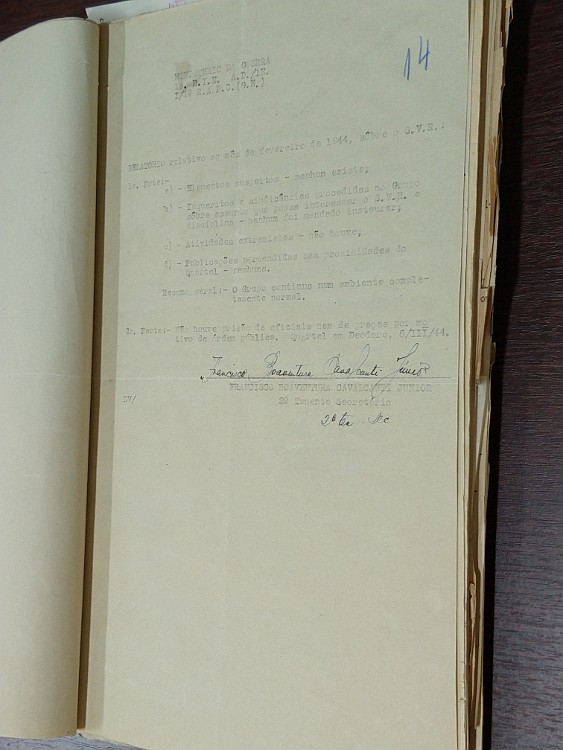 14
MINISTERIO DA GUERRA
D.I.E. A.D./1E.
RELATÓRIO relativo ao mês de fevereiro de 1944, sôbre o S.V.R.:
1a. Parte:-
a) - Elementos suspeitos - nenhum existe;
b) - Inqueritos e sindicâncias procedidas no Grupo
sôbre assunto que possa interessar o S.V.R. e
disciplina - nenhum foi mandado instaurar;
c) - Atividades extremistas - não houve;
d) - Publicações apreendidas nas proximidades do
Quartel - nenhuma.
Resumo geral:- O Grupo continua num ambiente comple-
tamente normal.
2a. Parte:- Não houve prisão de oficiais nem de praças por mo
tivo de ordem pública. Quartel em Deodoro, 6/III/44.
Francisco Boaventura Cavalcanti Júnior
FRANCISCO BOAVENTURA CAVALCANTI JUNIOR
2º Tenente Secretário
2º ten Sec